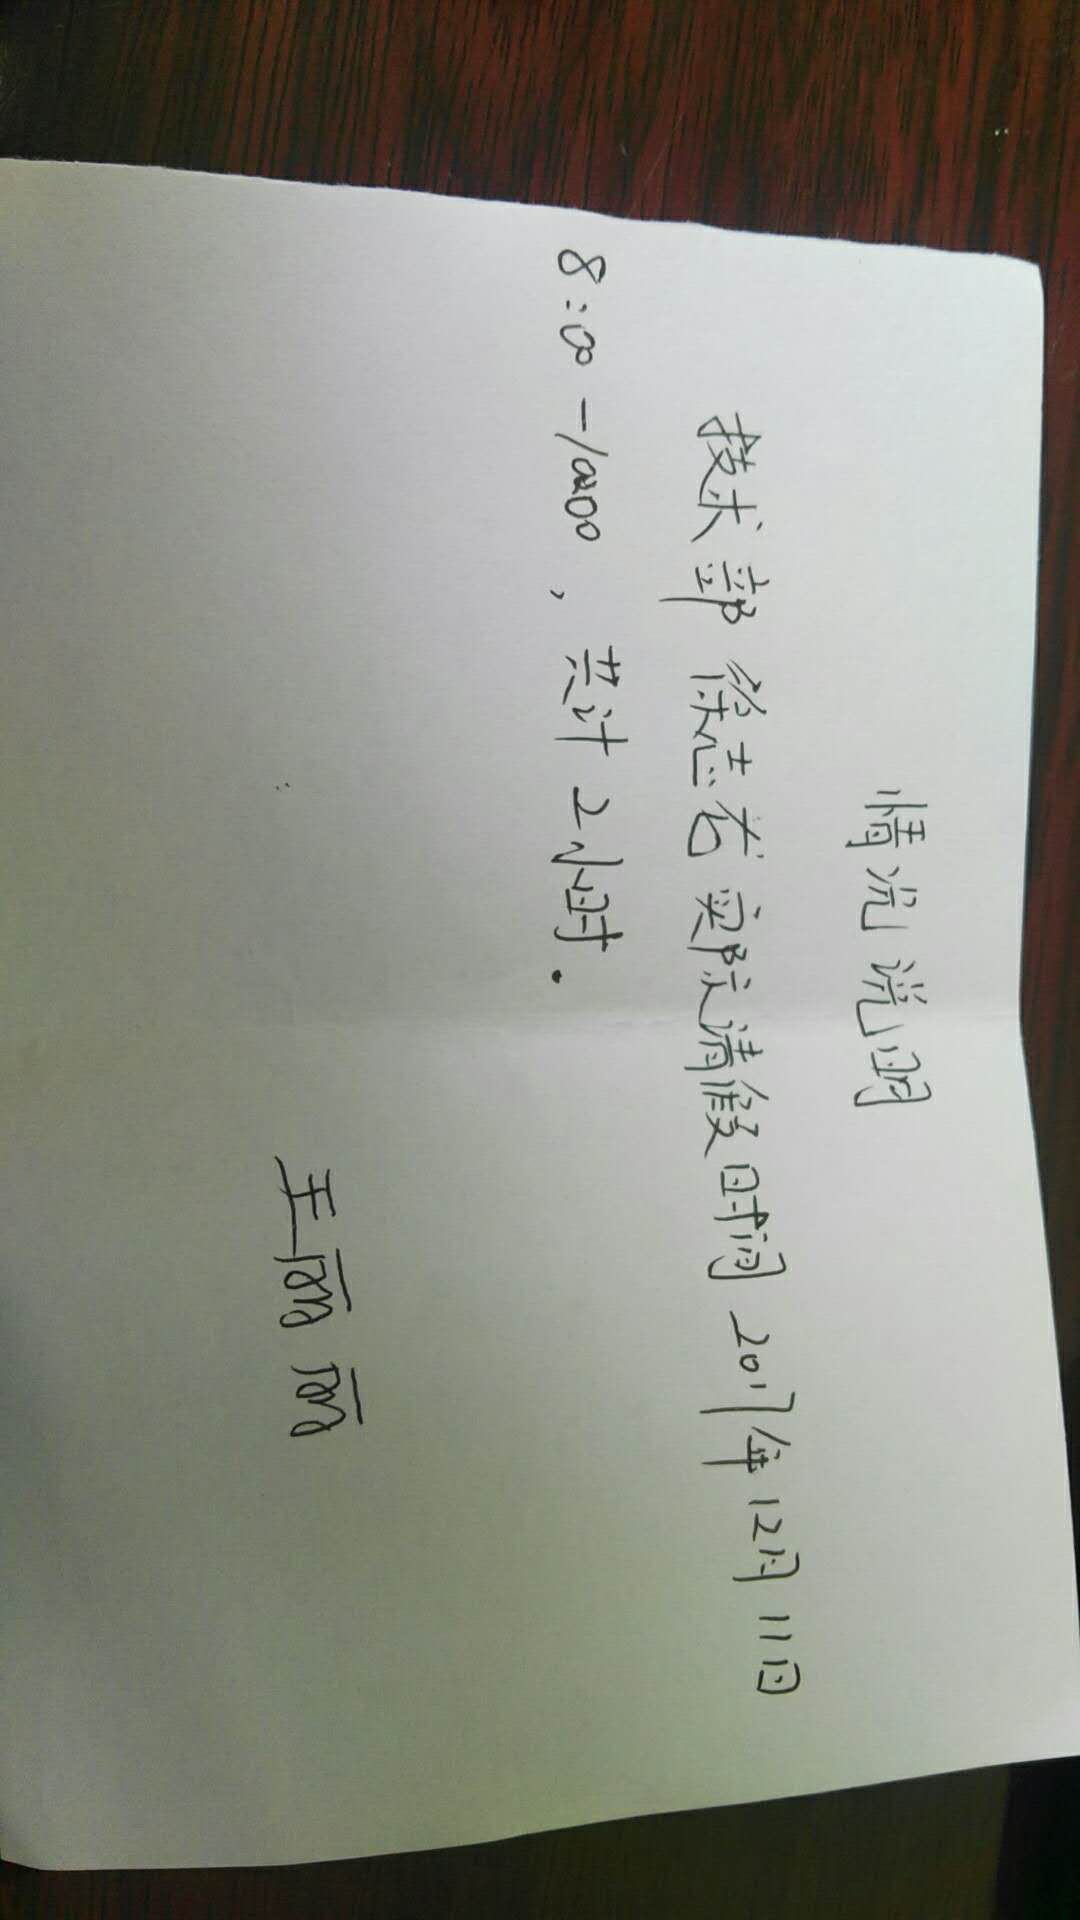 情况说明
技术部 徐志老 实际请假时间 2017年12月11日
8:00-10:00，共计2小时.
王丽丽